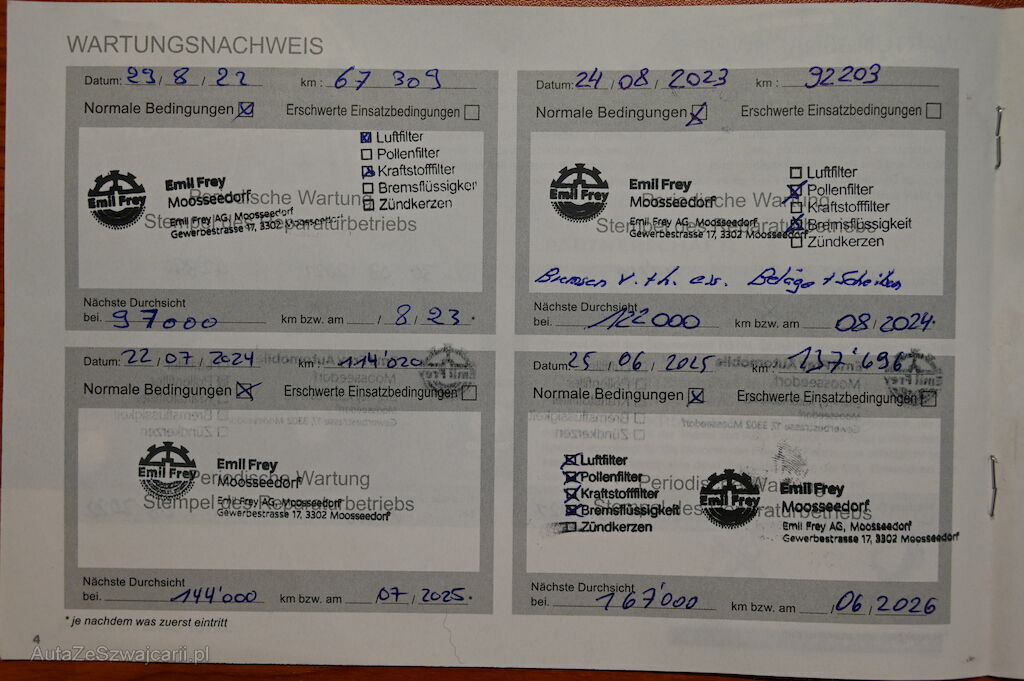 WARTUNGSNACHWEIS
Datum: 29 / 8 / 22 km : 67 309
Normale Bedingungen Erschwerte Einsatzbedingungen
Luftfilter
Pollenfilter
Kraftstofffilter
Bremsflüssigkeit
Zündkerzen
Emil Frey
Emil Frey
Moosseedorf
Emil Frey AG, Moosseedorf
Gewerbestrasse 17, 3302 Moosseedorf
Periodische Wartung
Stempel des Reparaturbetriebs
Nächste Durchsicht
bei. 97000 km bzw. am / 8 / 23.
Datum: 24 / 08 / 2023 km : 92203
Normale Bedingungen Erschwerte Einsatzbedingungen
Luftfilter
Pollenfilter
Kraftstofffilter
Bremsflüssigkeit
Zündkerzen
Emil Frey
Emil Frey
Moosseedorf
Emil Frey AG, Moosseedorf
Gewerbestrasse 17, 3302 Moosseedorf
Periodische Wartung
Stempel des Reparaturbetriebs
Bremsen v. + h. ers. Beläge + Scheiben
Nächste Durchsicht
bei. 122000 km bzw. am 08 / 2024.
Datum: 22 / 07 / 2024 km : 114'020
Normale Bedingungen Erschwerte Einsatzbedingungen
Emil Frey
Emil Frey
Moosseedorf
Emil Frey AG, Moosseedorf
Gewerbestrasse 17, 3302 Moosseedorf
Periodische Wartung
Stempel des Reparaturbetriebs
Nächste Durchsicht
bei. 144'000 km bzw. am 07 / 2025.
Datum: 25 / 06 / 2025 km : 137'696
Normale Bedingungen Erschwerte Einsatzbedingungen
Luftfilter
Pollenfilter
Kraftstofffilter
Bremsflüssigkeit
Zündkerzen
Emil Frey
Emil Frey
Moosseedorf
Emil Frey AG, Moosseedorf
Gewerbestrasse 17, 3302 Moosseedorf
Periodische Wartung
Stempel des Reparaturbetriebs
Nächste Durchsicht
bei. 167'000 km bzw. am / 06 / 2026
* je nachdem was zuerst eintritt
4
AutaZeSzwajcarii.pl